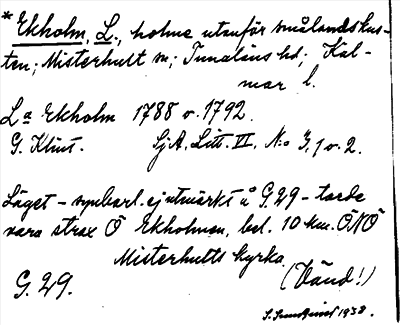 * Ekholm, L., holme utanför smålandskus-
ten; Misterhult sn; Tunaläns hd; Kal-
mar l.
La Ekholm 1788 o. 1792.
G. Klint. Sj.A. Litt. VI, No 3, 1 o. 2.
Läget – synbarl. ej utmärkt å G.29 – torde
vara strax Ö Ekholmen, bel. 10 km. ÖNÖ
Misterhults kyrka.
G. 29. (Vänd!)
1938.